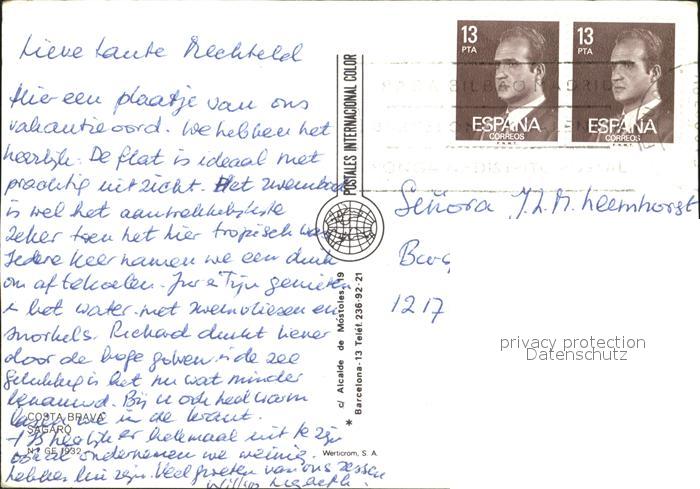 Lieve tante Mechteld
Hier een plaatje van ons
vakantieoord. We hebben het
heerlijk. De flat is ideaal met
prachtig uitzicht. Het zwembad
is wel het aantrekkelijkste
zeker toen het hier tropisch was
Iedere keer namen we een duik
om af te koelen. genieten
het water met zwemvliezen en
snorkels. Richard duikt liever
door de hoge golven de zee
Gelukkig is het nu wat minder
benauwd. Bij u ook heel warm
lazen we in de krant.
heerlijk er helemaal uit te zijn
ondernemen we weinig.
hebben Veel groeten van ons zessen
COSTA BRAVA
SAGARÓ
N.º GE 1932
POSTALES INTERNACIONAL COLOR
c/ Alcalde de Móstoles, 19
Barcelona-13 Teléf. 236-92-21
Werticrom, S. A.
13
PTA
ESPAÑA
CORREOS
F.N.M.T.
13
PTA
ESPAÑA
CORREOS
F.N.M.T.
BILBAO MADRID
POSTAL
Señora J.L.M. Leemhorst
1217
privacy protection
Datenschutz